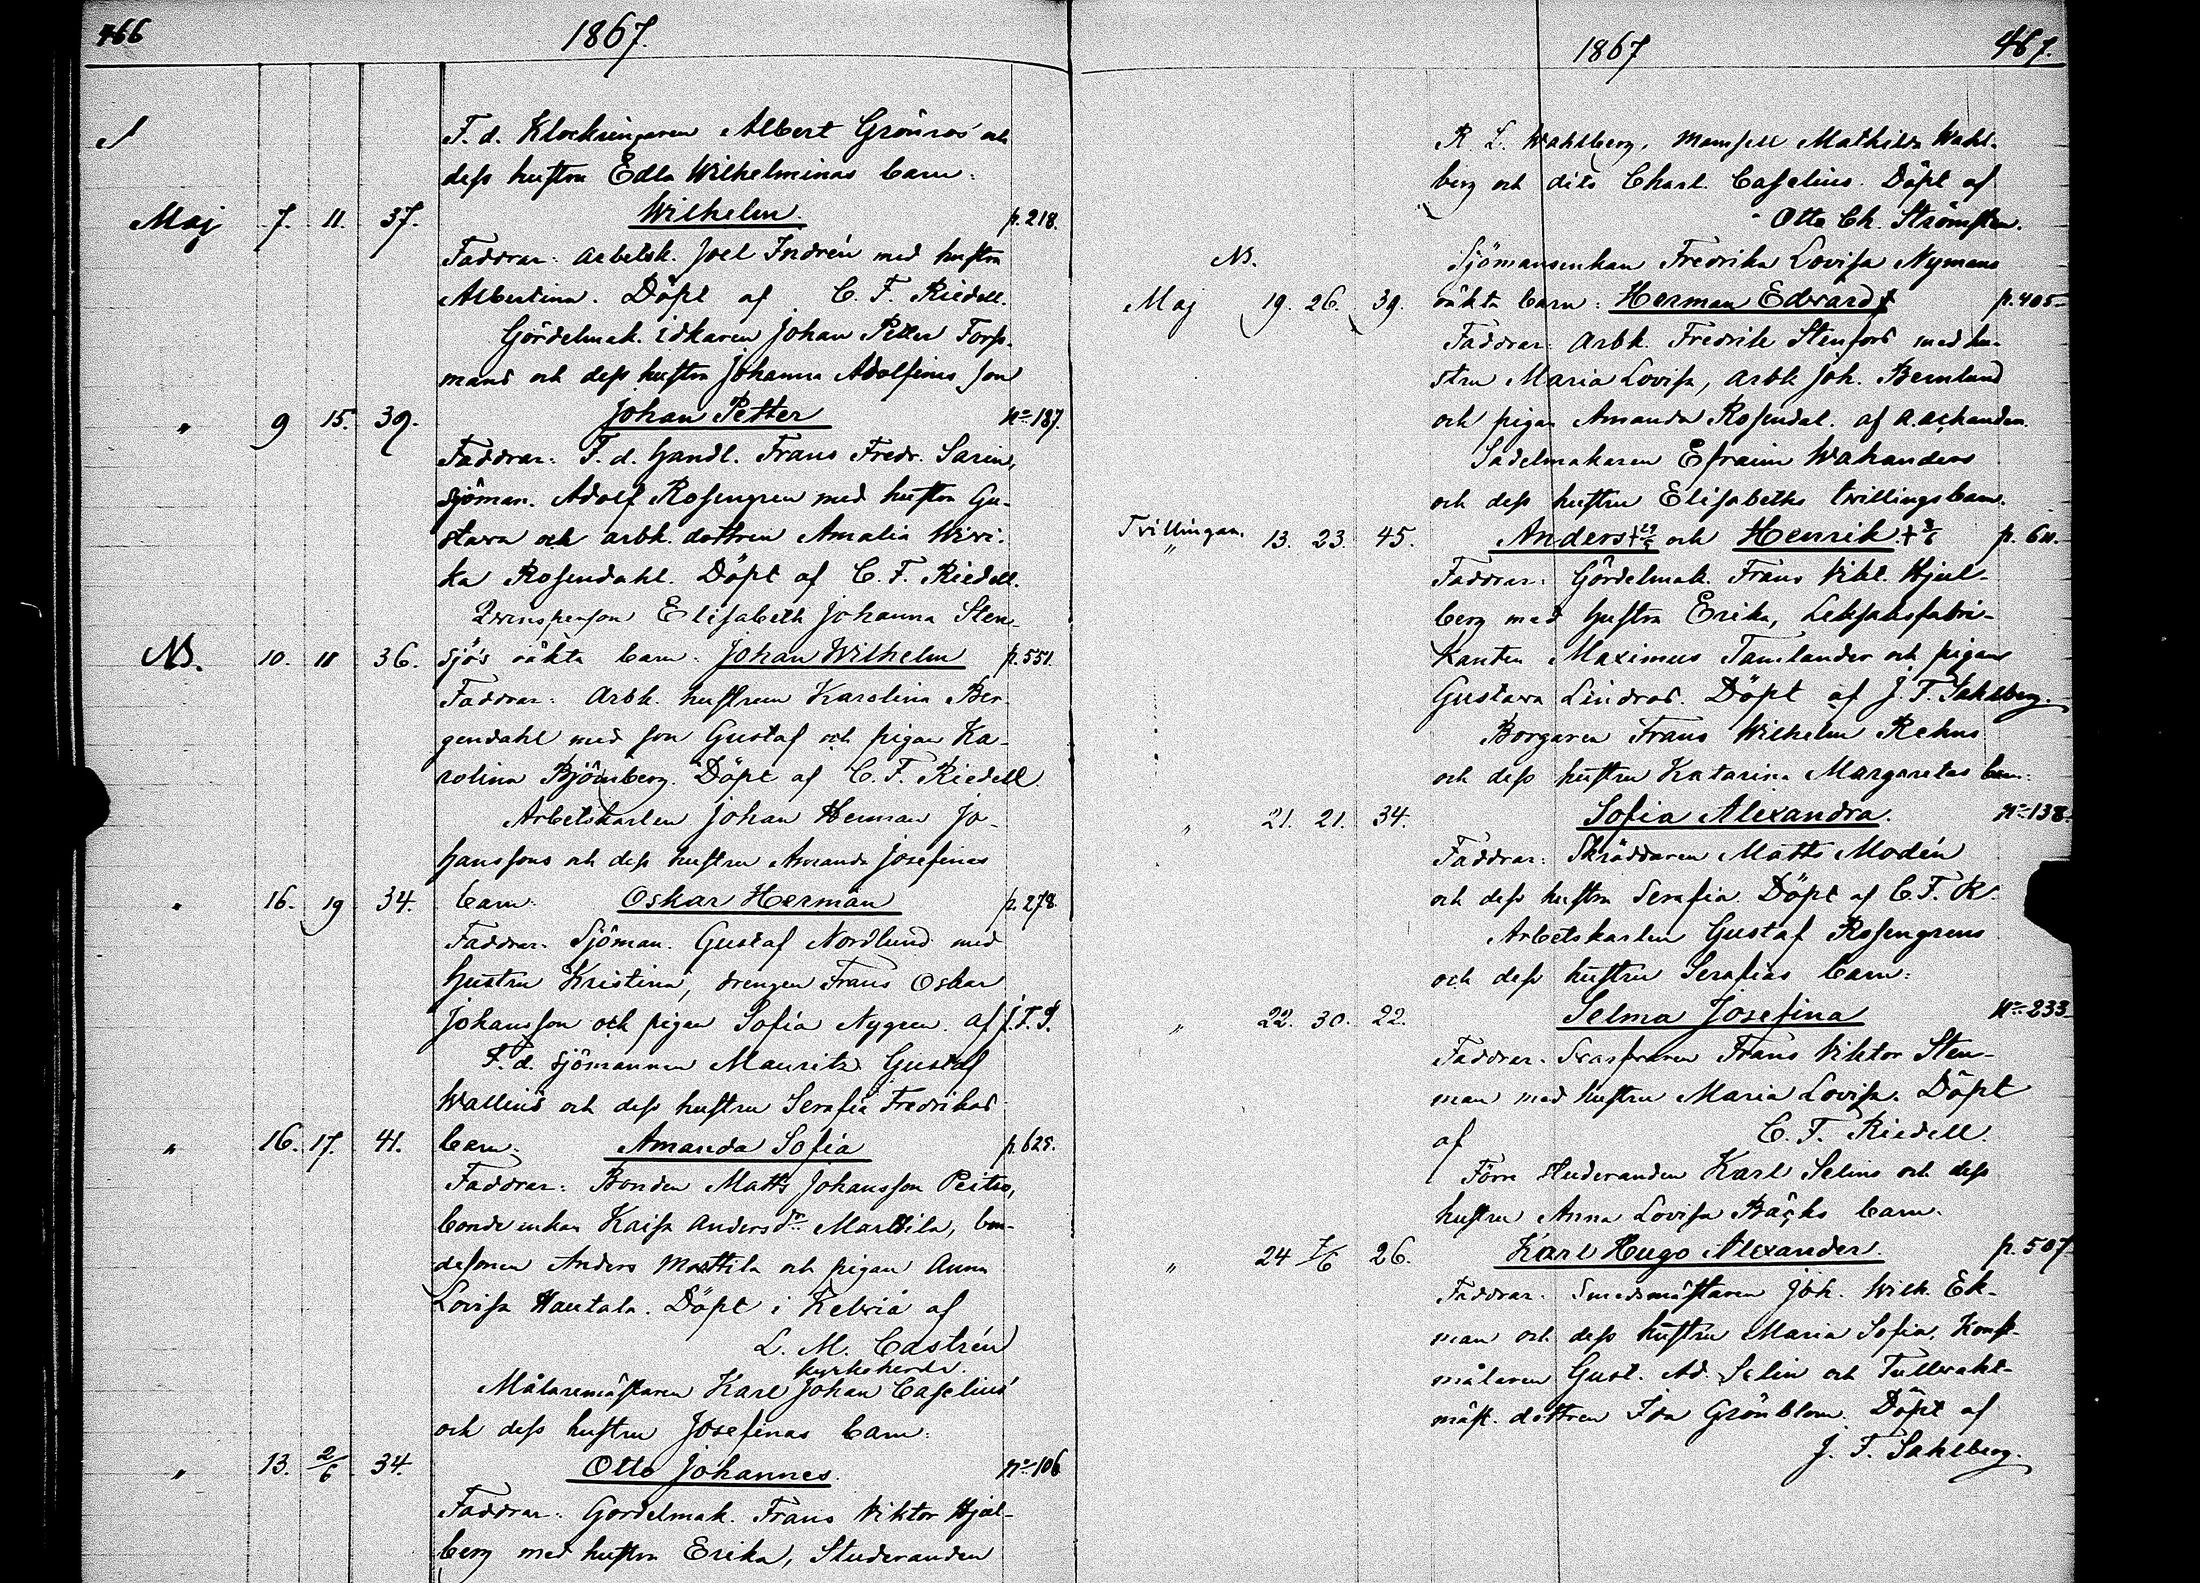 466 1867.
F. d. Klockringaren Albert Grönros och
dess hustru Edla Wilhelminas barn:
Maj 7. 11. 37. Wilhelm. p. 218.
Faddrar: arbetsk. Joel Indrén med hustru
Albertina. Döpt af C. F. Riedell.
Gördelmak. idkaren Johan Petter Forss-
mans och dess hustru Johanna Adolfinas son
" 9 15. 39. Johan Petter No 187.
Faddrar: F. d. Handl. Frans Fredr. Sarin,
Sjöman. Adolf Rosengren med hustru Gu-
stava och arbk. dottren Amalia Wivi-
ka Rosendahl. Döpt af C. F. Riedell.
Qvinsperson Elisabeth Johanna Sten-
NB. 10. 11 36. sjö's oäkta barn: Johan Wilhelm p. 551.
Faddrar: Arbk. hustrun Karolina Ber-
gendahl med son Gustaf och pigan Ka-
rolina Björnberg. Döpt af C. F. Riedell.
Arbetskarlen Johan Herman Jo-
hanssons och dess hustru Amanda Josefinas
" 16. 19 34. barn: Oskar Herman p. 278.
Faddrar: Sjöman. Gustaf Nordlund med
hustru Kristina, drengen Frans Oskar
Johansson och pigan Sofia Nygren. af J. T. S.
F. d. Sjömannen Mauritz Gustaf
Wallins och dess hustru Serafia Fredrikas
" 16. 17. 41. barn: Amanda Sofia p. 625.
Faddrar: Bonden Matts Johansson Peitso,
bonde enkan Kaisa Anders dr Marttila, bon-
desonen Anders Marttila och pigan Anna
Lovisa Hautala. Döpt i Kelviå af
L. M. Castrén
kyrkoherde.
Målaremästaren Karl Johan Caselius'
och dess hustru Josefinas barn:
" 13. 2/6 34. Otto Johannes. No 106
Faddrar: Gördelmak. Frans Viktor Hjel-
berg med hustru Erika, Studeranden
1867 467.
R. L. Wahlberg, Mamsell Mathilda Wahl-
berg och dito Charl. Caselius. Döpt af
Otto Ch. Strömsten.
NB. Sjömansenkan Fredrika Lovisa Nymans
Maj 19. 26. 39. oäkta barn: Herman Edvard † p. 405
Faddrar: Arbk. Fredrik Stenfors med hu-
stru Maria Lovisa, arbk Joh. Bernlund
och pigan Amanda Rosendal. af
Sadelmakaren Efraim Wahanders
och dess hustru Elisabeths tvillingsbarn.
Tvillingar. " 13. 23. 45. Anders + 29/5 och Henrik. + 3/6 p. 611.
Faddrar: Gördelmak. Frans Vikt. Hjel-
berg med hustru Erika, Leksaksfabri-
kanten Maximus Tamlander och pigan
Gustava Lindros. Döpt af J. T. Sahlberg.
Borgaren Frans Wilhelm Rehns
och dess hustru Katarina Margaretas barn:
" 21. 21. 34. Sofia Alexandra. No 138.
Faddrar: Skräddaren Matts Modén
och dess hustru Serafia. Döpt af C. F. R.
Arbetskarlen Gustaf Rosengrens
och dess hustru Serafias barn:
" 22. 30. 22. Selma Josefina No 233
Faddrar: Svarfvaren Frans Viktor Sten-
man med hustru Maria Lovisa. Döpt
af C. F. Riedell.
Förre studeranden Karl Selins och dess
hustru Anna Lovisa Bäcks barn.
" 24 7/6 26. Karl Hugo Alexander. p. 507
Faddrar. Smedsmästaren Joh. Wilh. Ek-
man och dess hustru Maria Sofia, Konst-
målaren Gust. Ad. Selin och Tullvakt-
mäst. dottren Ida Grönblom. Döpt af
J. T. Sahlberg.